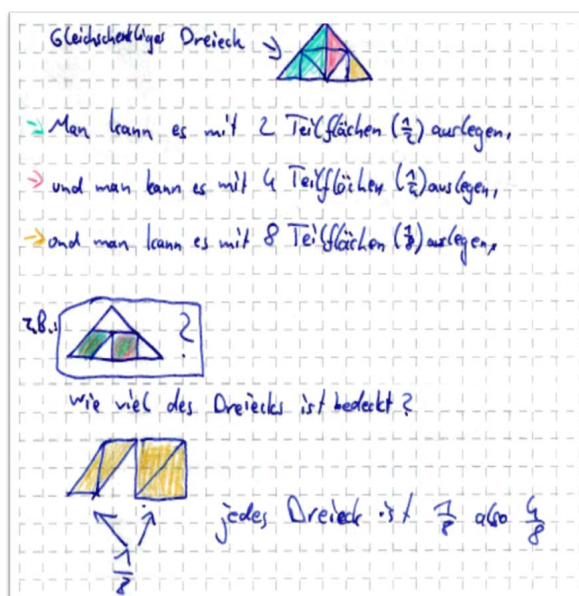 Gleichschenkliges Dreieck →
→ Man kann es mit 2 Teilflächen (1/2) auslegen,
→ und man kann es mit 4 Teilflächen (1/4) auslegen,
→ und man kann es mit 8 Teilflächen (1/8) auslegen,
z.B.: ?
Wie viel des Dreiecks ist bedeckt?
jedes Dreieck ist 1/8 also 4/8
1/8